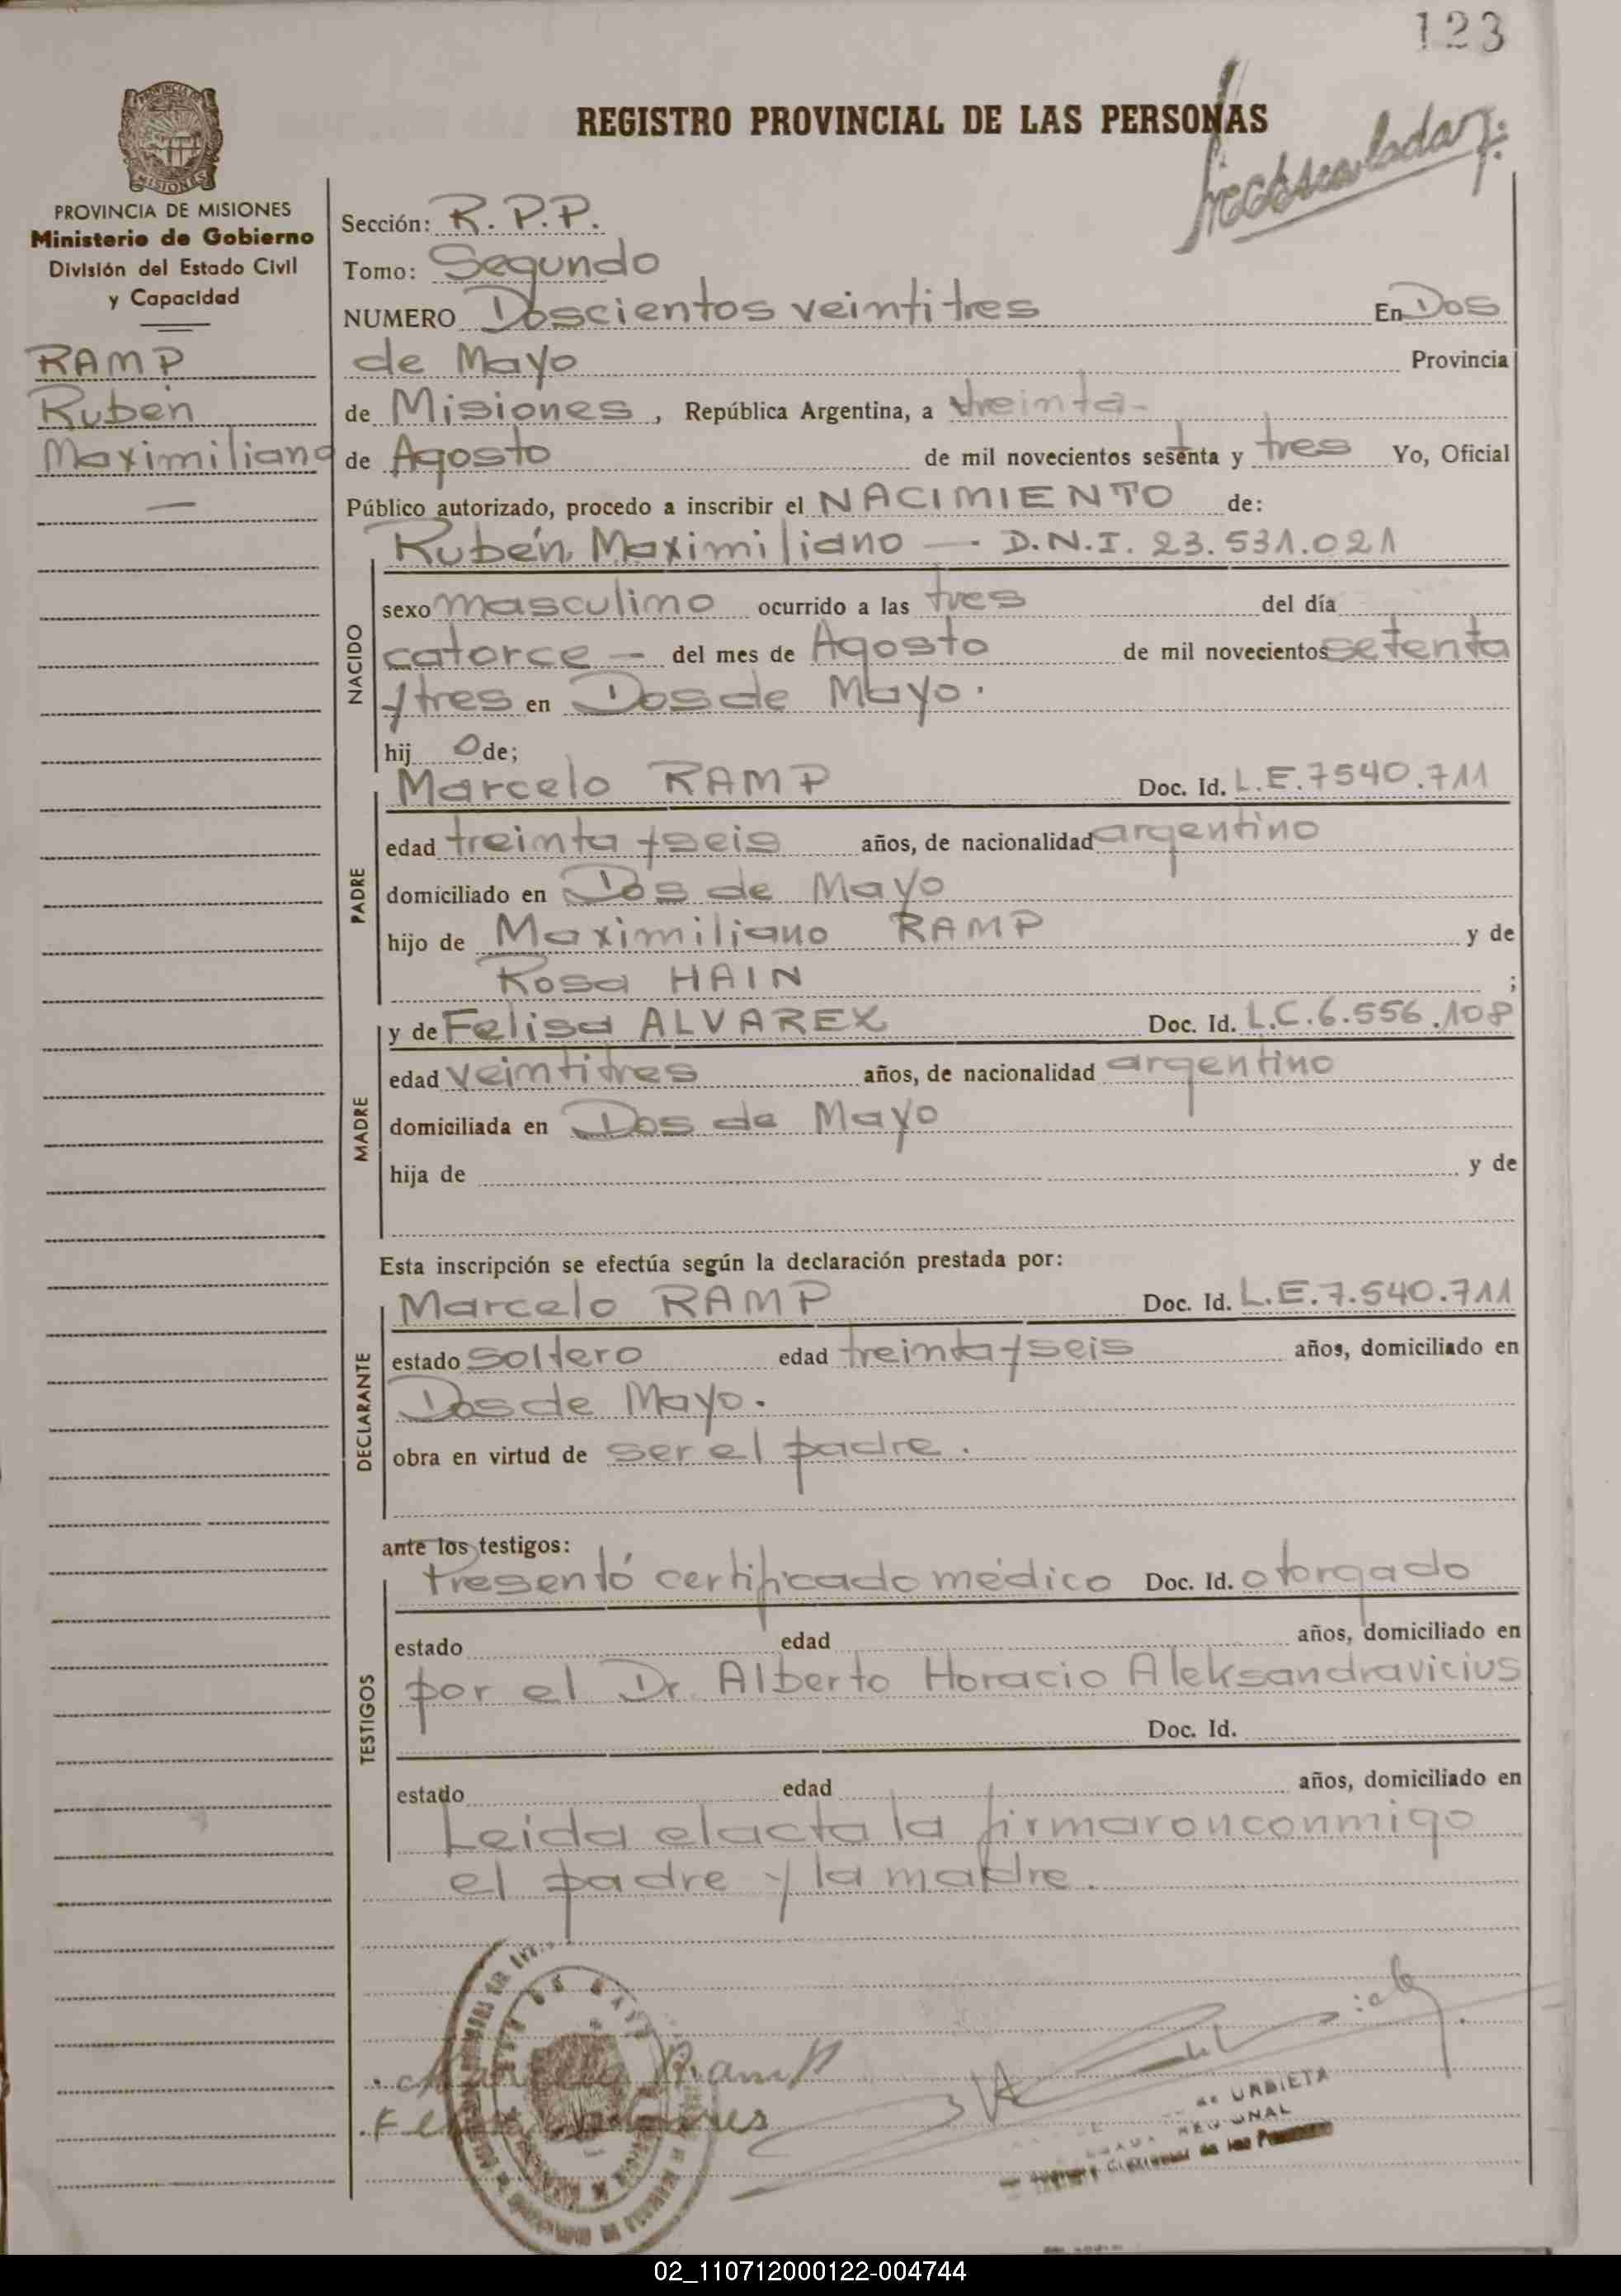 123
REGISTRO PROVINCIAL DE LAS PERSONAS
PROVINCIA DE MISIONES
Ministerio de Gobierno
División del Estado Civil
y Capacidad
RAMP
Rubén
Maximiliano
Sección: R.P.P.
Tomo: Segundo
NUMERO Doscientos veintitres En Dos
de Mayo Provincia
de Misiones, República Argentina, a treinta
de Agosto de mil novecientos sesenta y tres Yo, Oficial
Público autorizado, procedo a inscribir el NACIMIENTO de:
NACIDO
Rubén Maximiliano — D.N.I. 23.531.021
sexo masculino ocurrido a las tres del día
catorce — del mes de Agosto de mil novecientos setenta
y tres en Dos de Mayo.
hij o de;
PADRE
Marcelo RAMP Doc. Id. L.E.7540.711
edad treinta y seis años, de nacionalidad argentino
domiciliado en Dos de Mayo
hijo de Maximiliano RAMP y de
Rosa HAIN ;
MADRE
y de Felisa ALVAREX Doc. Id. L.C.6.556.108
edad veintitres años, de nacionalidad argentino
domiciliada en Dos de Mayo
hija de y de
Esta inscripción se efectúa según la declaración prestada por:
DECLARANTE
Marcelo RAMP Doc. Id. L.E.7.540.711
estado soltero edad treinta y seis años, domiciliado en
Dos de Mayo.
obra en virtud de ser el padre.
ante los testigos:
TESTIGOS
Presentó certificado médico Doc. Id. otorgado
estado edad años, domiciliado en
por el Dr. Alberto Horacio Aleksandravicius
Doc. Id.
estado edad años, domiciliado en
Leida el acta la firmaron conmigo
el padre y la madre.
Ramp
URBIETA
02_110712000122-004744